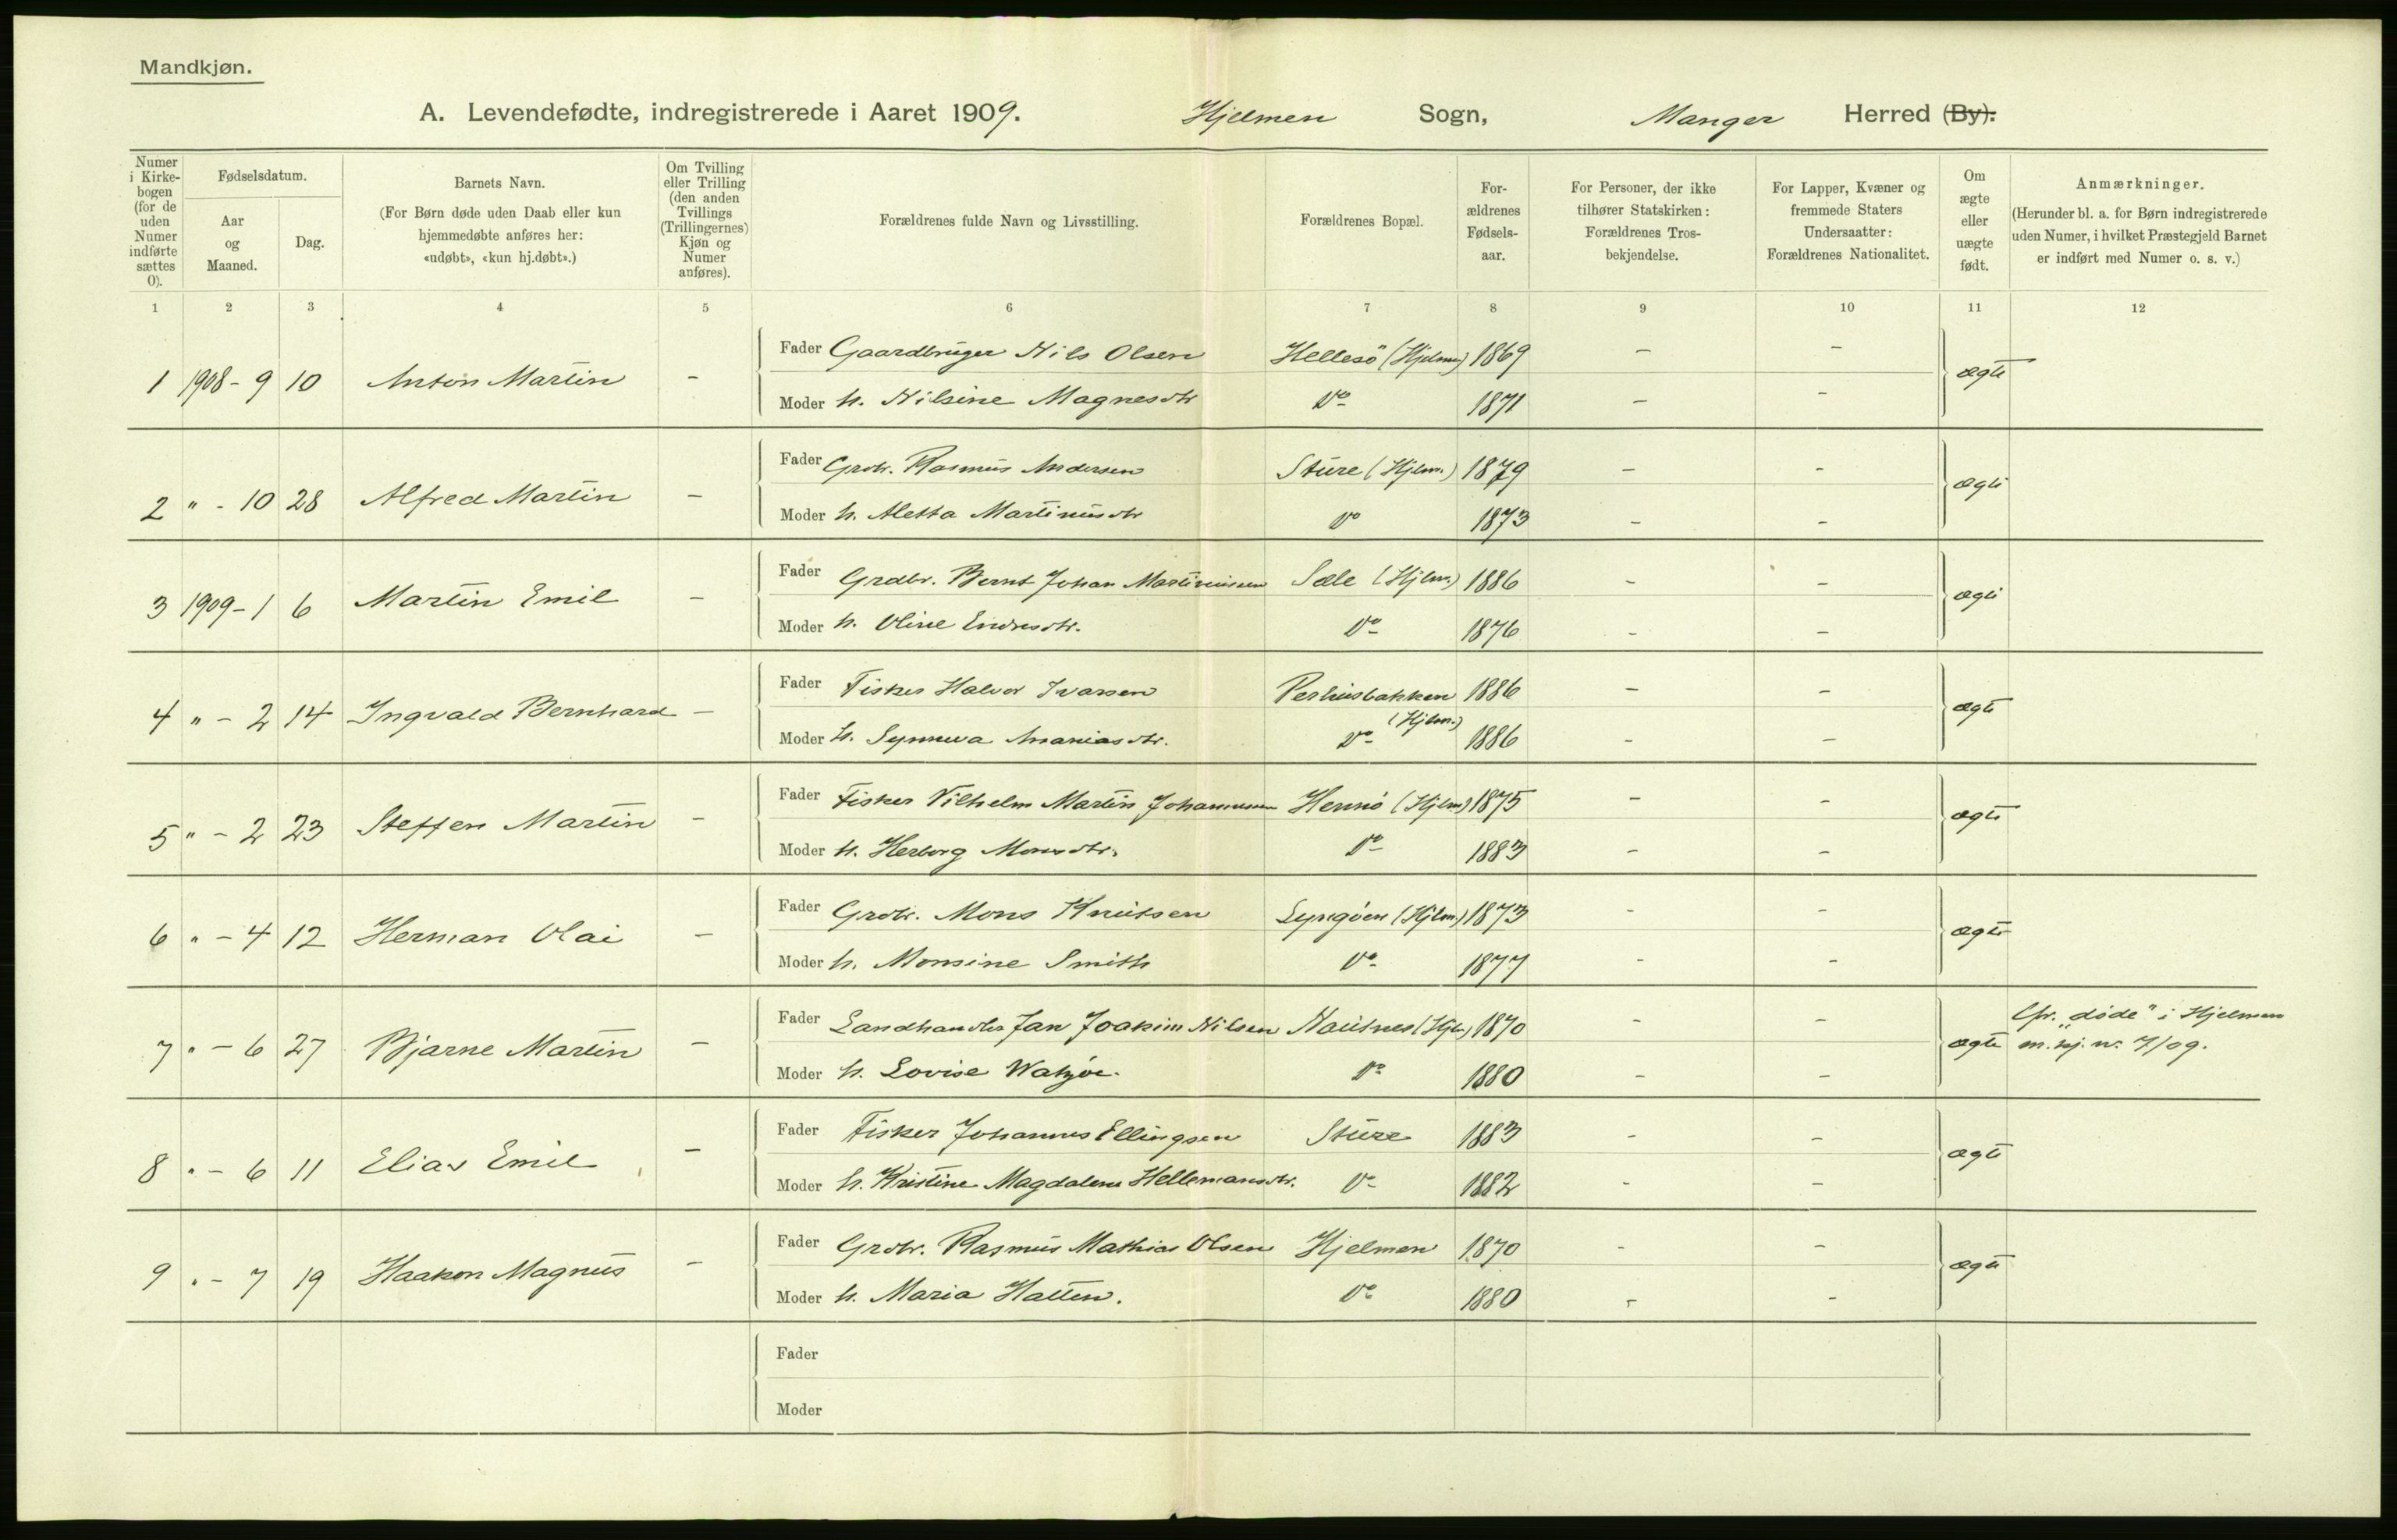 Mandkjøn.
A. Levendefødte, indregistrerede i Aaret 1909. Hjelmen Sogn, Manger Herred (By).
Numer i Kirkebogen (for de uden Numer indførte sættes 0).
Fødselsdatum.
Aar og Maaned.
Dag.
Barnets Navn.
(For Børn døde uden Daab eller kun hjemmedøbte anføres her: «udøbt», «kun hj.døbt».)
Om Tvilling eller Trilling (den anden Tvillings (Trillingernes) Kjøn og Numer anføres).
Forældrenes fulde Navn og Livsstilling.
Forældrenes Bopæl.
Forældrenes Fødselsaar.
For Personer, der ikke tilhører Statskirken: Forældrenes Trosbekjendelse.
For Lapper, Kvæner og fremmede Staters Undersaatter: Forældrenes Nationalitet.
Om ægte eller uægte født.
Anmærkninger.
(Herunder bl. a. for Børn indregistrerede uden Numer, i hvilket Præstegjeld Barnet er indført med Numer o. s. v.)
1 2 3 4 5 6 7 8 9 10 11 12
Fader Gaardbruger Nils Olsen Hellesö (Hjelmen) 1869 - -
1 1908 - 9 10 Anton Martin - ægte
Moder h. Nilsine Magnesdtr Do 1871 - -
Fader Grdbr. Rasmus Andersen Sture (Hjelm.) 1879 - -
2 " - 10 28 Alfred Martin - ægte
Moder h. Aletta Martinusdtr Do 1873 - -
Fader Grdbr. Bernt Johan Martinussen Sæle (Hjlm.) 1886 - -
3 1909 - 1 6 Martin Emil - ægte
Moder h. Oline Endresdtr. Do 1876 - -
Fader Fisker Halvor Ivarsen Perhusbakken 1886 - -
4 " - 2 14 Ingvald Bernhard - (Hjlm.) ægte
Moder h. Synneva Ananiasdtr. Do 1886 - -
Fader Fisker Vilhelm Martin Johannessen Hernö (Hjlm) 1875 - -
5 " - 2 23 Steffen Martin - ægte
Moder h. Herborg Monsdtr. Do 1883 - -
Fader Grdbr. Mons Knutsen Lyngöen (Hjlm.) 1873 - -
6 " - 4 12 Herman Olai - ægte
Moder h. Monsine Smith Do 1877 - -
Fader Landhandler Jan Joakim Nilsen Nautnes (Hjl.) 1870 - - Cfr. "døde" i Hjelmen
7 " - 6 27 Bjarne Martin - ægte m. kj. nr. 7/09.
Moder h. Lovise Do 1880 - -
Fader Fisker Johannes Ellingsen Sture 1883 - -
8 " - 6 11 Elias Emil - ægte
Moder h. Kristine Magdalena Hellemansdtr. Do 1882 - -
Fader Grdbr. Rasmus Mathias Olsen Hjelmen 1870 - -
9 " - 7 19 Haakon Magnus - ægte
Moder h. Maria Hatten. Do 1880 - -
Fader
Moder